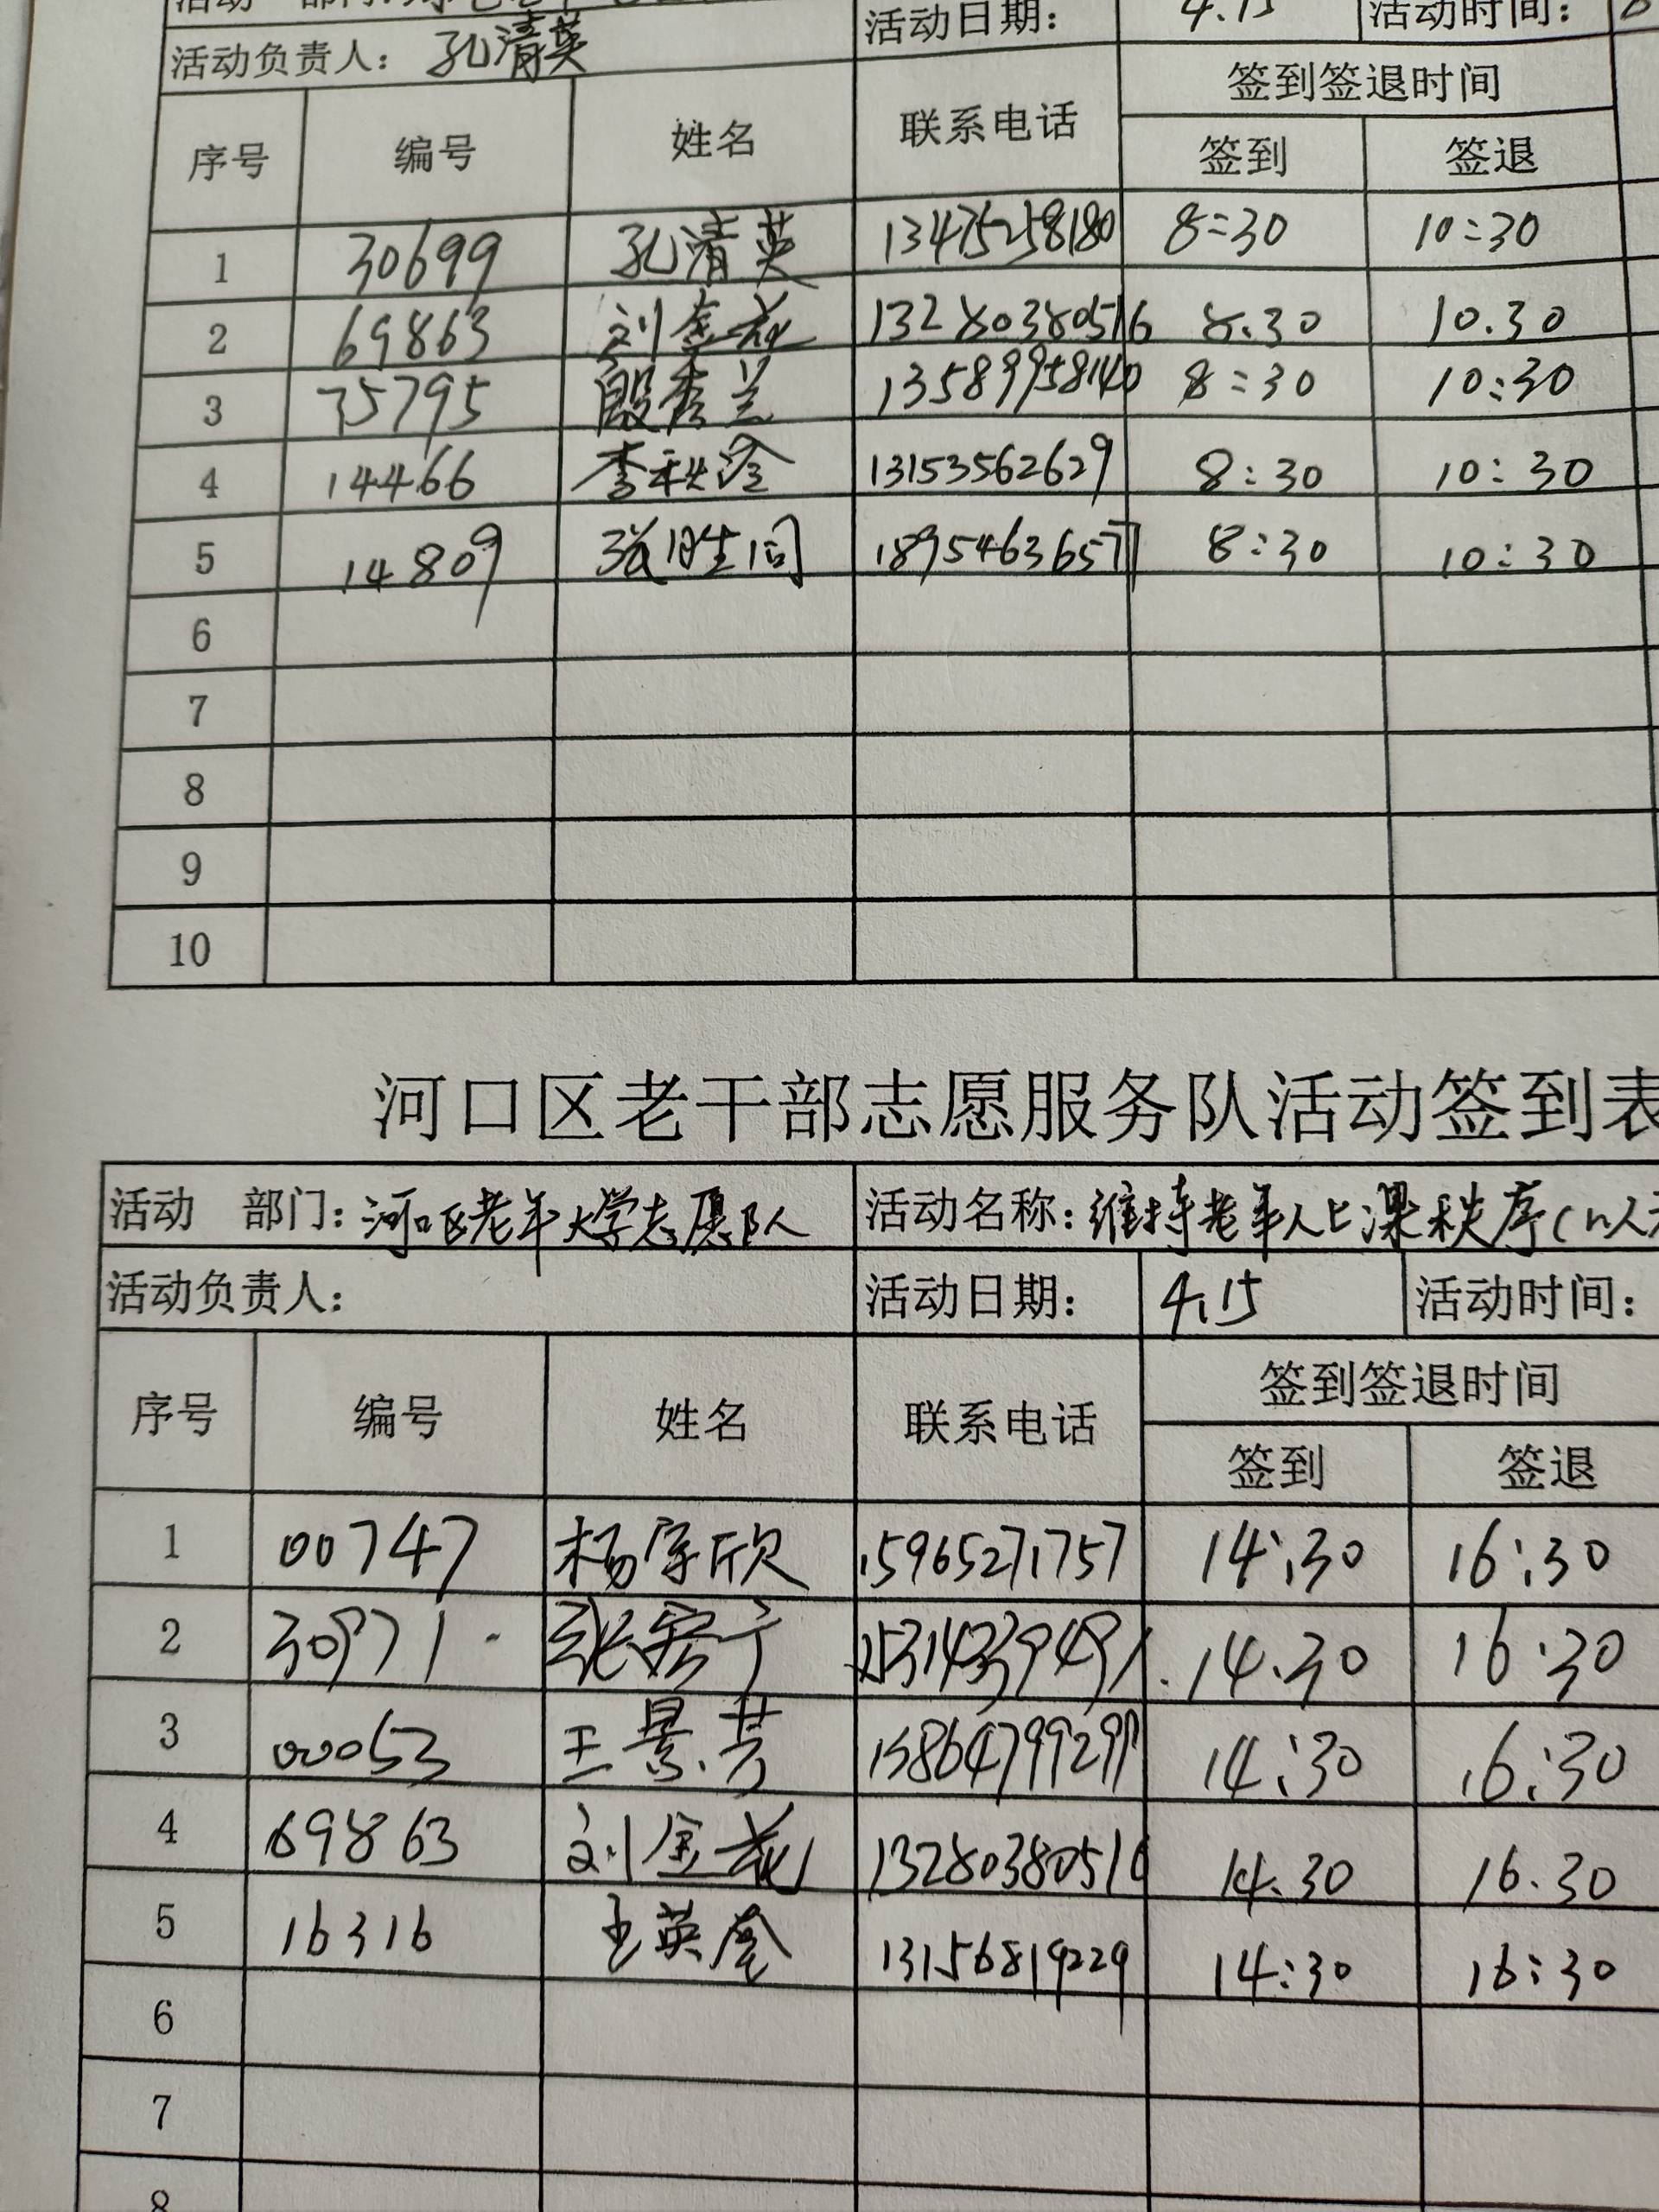 活动负责人：孔清英 活动日期： 4.15 活动时间：
序号 编号 姓名 联系电话 签到签退时间
签到 签退
1 30699 孔清英 13475258180 8:30 10:30
2 69863 刘金花 13280380516 8.30 10.30
3 75795 殷秀兰 13589958140 8:30 10:30
4 14466 李秋 13153562629 8:30 10:30
5 14809 张 18954636571 8:30 10:30
6
7
8
9
10
河口区老干部志愿服务队活动签到表
活动 部门：河口区老年大学志愿队 活动名称：维持老年人上课秩序(
活动负责人： 活动日期： 4.15 活动时间：
序号 编号 姓名 联系电话 签到签退时间
签到 签退
1 00747 杨字欣 15965271757 14:30 16:30
2 30971 张 14.30 16:30
3 00053 王景芳 14:30 16:30
4 69863 刘金花 13280380516 14.30 16.30
5 16316 王英 13156819229 14:30 16:30
6
7
8